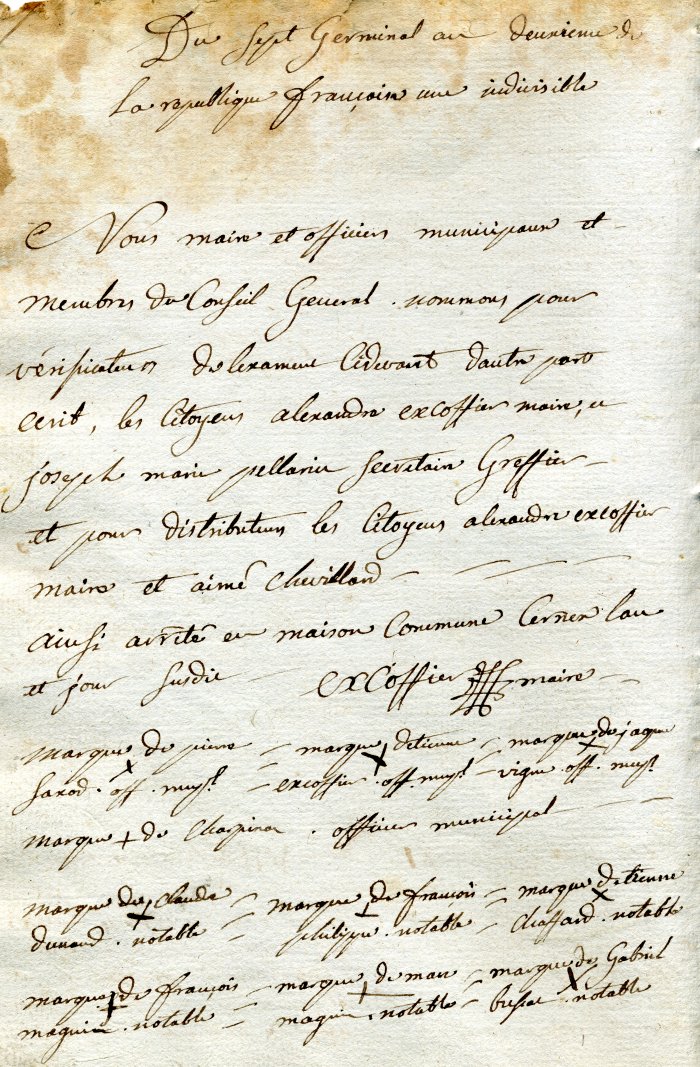 Du sept Germinal an deuxieme de
la republique françoise une indivisible
Nous maire et officiers municipaux et
membres du Conseil General . nommons pour
vérificateurs de lexament Cidevant dautre part
ecrit, les Citoyens alexandre excoffier maire, et
joseph marie pellarin secretaire Greffier
et pour distributeurs les Citoyens alexandre excoffier
maire et aimé Chevilland
ainsi arrêté en maison Commune Cernex lan
et jour susdit excoffier maire
marque de pierre – marque detienne – marque de jaque
Sarod . off. mupl – excoffier . off. mupl – vigne off. mupl
marque + de Chapinar . officier municipal
marque de Claude – marque de françois – marque detienne
dunand . notable – philippe . notable – Chaffard . notable
marque de françois – marque de marc – marque de Gabriel
magnin . notable – magnin . notable – notable